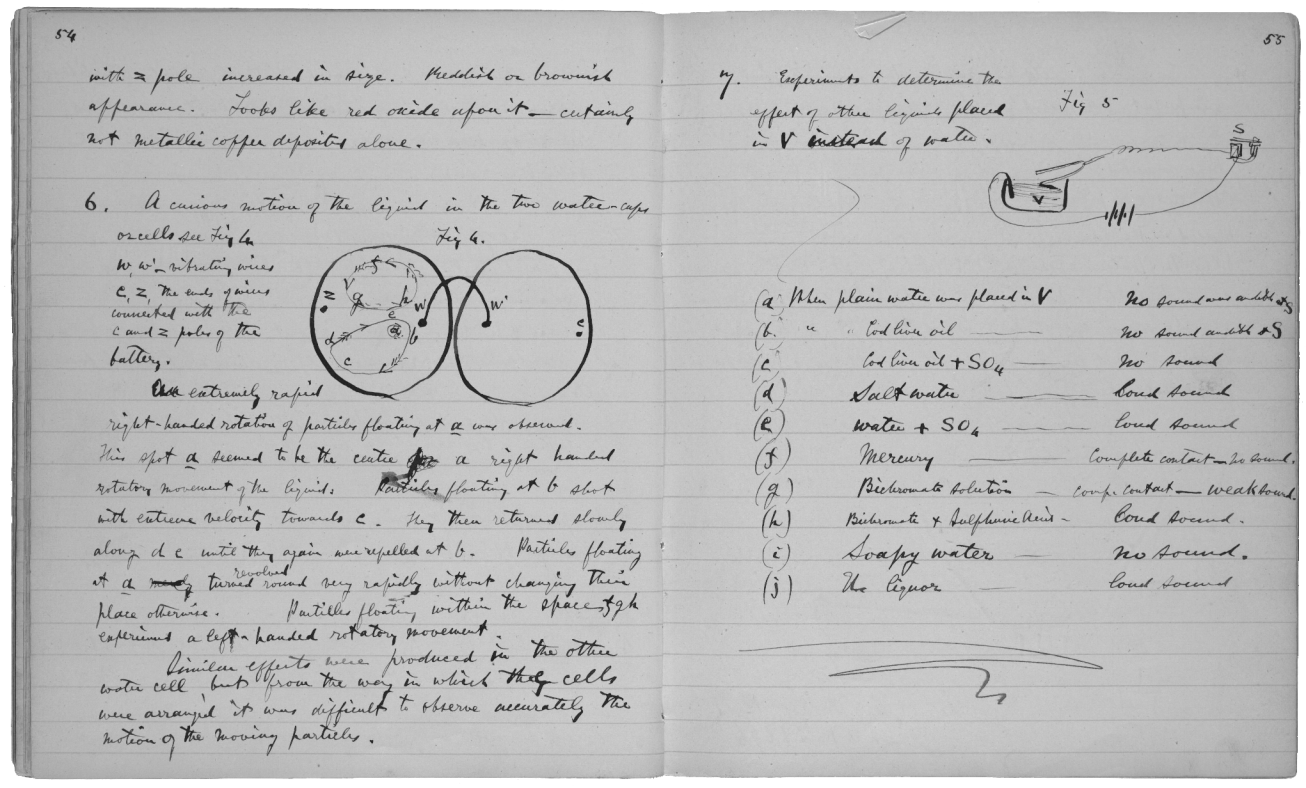 54
with Z pole increased in size. Reddish or brownish
appearance. Looks like red oxide upon it — certainly
not metallic copper deposited alone.
6. A curious motion of the liquid in the two water-cups
or cells see Fig 4.
Fig 4.
W, W' — vibrating wires
C, Z, the ends of wires
connected with the
C and Z poles of the
battery.
Z
f
g
h
W
W'
e
d
a
b
c
C
An extremely rapid
right-handed rotation of particles floating at a was observed.
This spot a seemed to be the centre for a right handed
rotatory movement of the liquid. Particles floating at b shot
with extreme velocity towards c. They then returned slowly
along d e until they again were repelled at b. Particles floating
at a turned revolved round very rapidly without changing their
place otherwise. Particles floating within the space f g h
experienced a left-handed rotatory movement.
Similar effects were produced in the other
water cell, but from the way in which the cells
were arranged it was difficult to observe accurately the
motion of the moving particles.
55
7. Experiments to determine the
effect of other liquids placed
in V instead of water.
Fig 5
S
V
(a) When plain water was placed in V No sound was audible at S
(b) " " Cod liver oil — No sound audible at S
(c) Cod liver oil + SO4 — No sound
(d) Salt water — Loud sound
(e) water + SO4 — Loud sound
(f) Mercury — Complete contact — no sound.
(g) Bichromate solution — comp. contact — weak sound.
(h) Bichromate + Sulphuric Acid — Loud sound.
(i) Soapy water — no sound.
(j) The liquor — loud sound